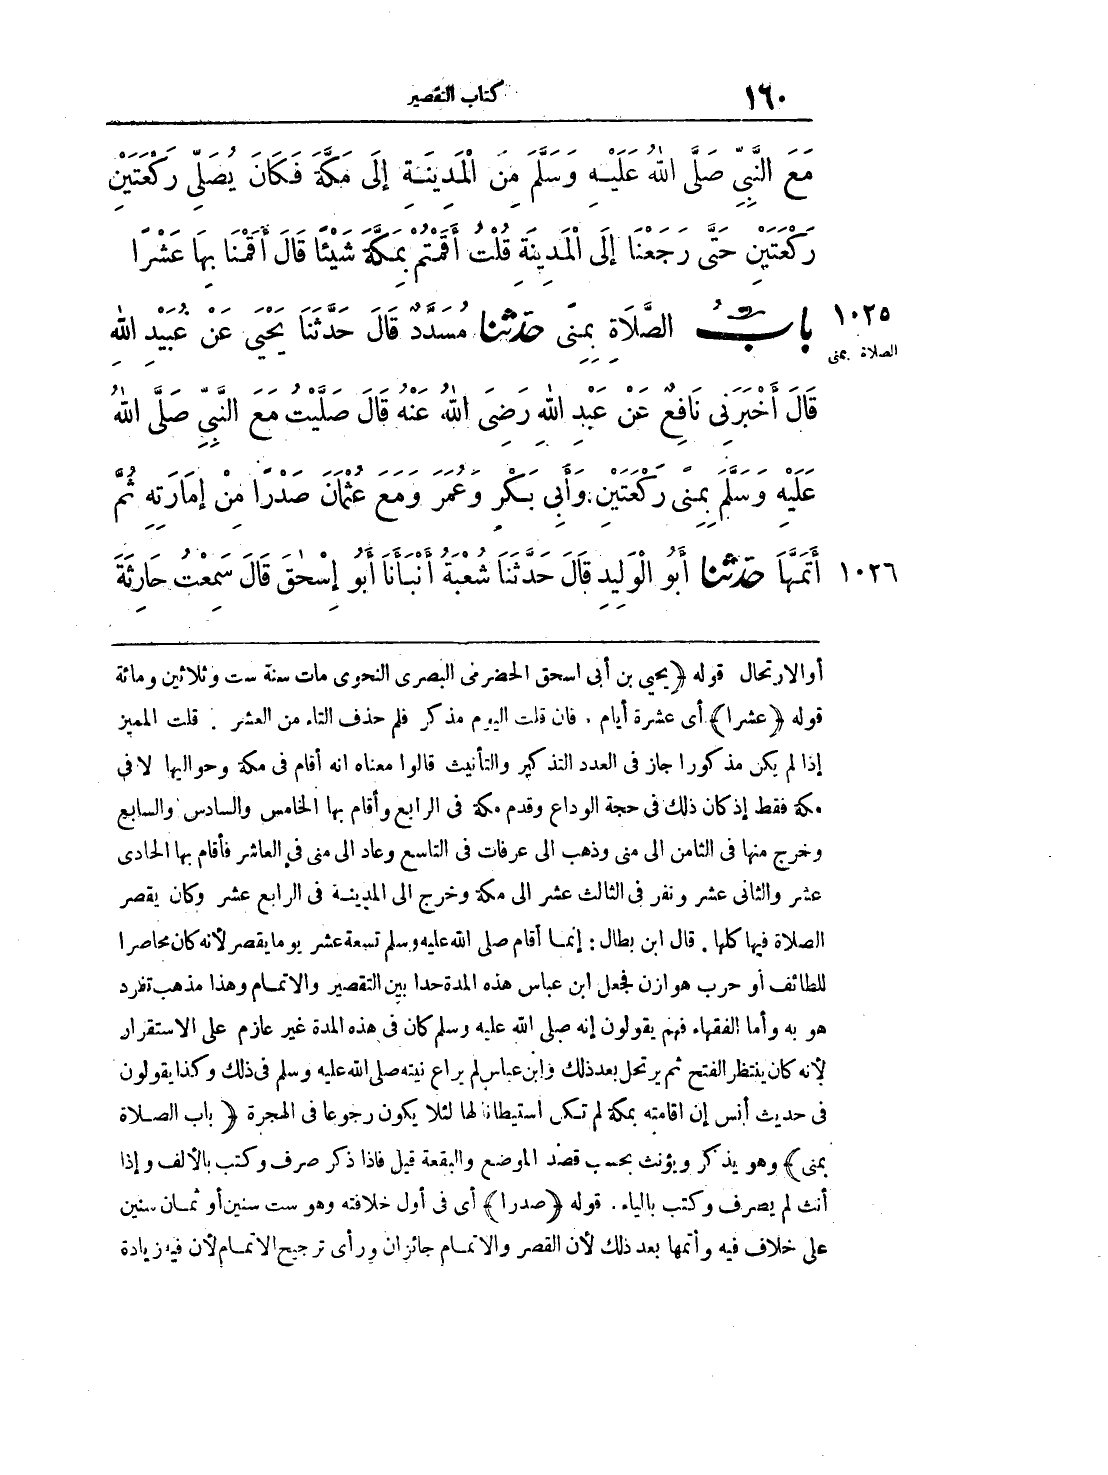 ١٦٠ كتاب التقصير
مَعَ النَّبِيِّ صَلَّى اللهُ عَلَيْهِ وَسَلَّمَ مِنَ الْمَدِينَةِ إِلَى مَكَّةَ فَكَانَ يُصَلِّي رَكْعَتَيْنِ
رَكْعَتَيْنِ حَتَّى رَجَعْنَا إِلَى الْمَدِينَةِ قُلْتُ أَقَمْتُمْ بِمَكَّةَ شَيْئًا قَالَ أَقَمْنَا بِهَا عَشْرًا
١٠٢٥ بابُ الصَّلَاةِ بِمِنًى حَدَّثَنَا مُسَدَّدٌ قَالَ حَدَّثَنَا يَحْيَى عَنْ عُبَيْدِ اللهِ
الصلاة بمنى
قَالَ أَخْبَرَنِي نَافِعٌ عَنْ عَبْدِ اللهِ رَضِيَ اللهُ عَنْهُ قَالَ صَلَّيْتُ مَعَ النَّبِيِّ صَلَّى اللهُ
عَلَيْهِ وَسَلَّمَ بِمِنًى رَكْعَتَيْنِ وَأَبِي بَكْرٍ وَعُمَرَ وَمَعَ عُثْمَانَ صَدْرًا مِنْ إِمَارَتِهِ ثُمَّ
١٠٢٦ أَتَمَّهَا حَدَّثَنَا أَبُو الْوَلِيدِ قَالَ حَدَّثَنَا شُعْبَةُ أَنْبَأَنَا أَبُو إِسْحَقَ قَالَ سَمِعْتُ حَارِثَةَ
أو الارتحال قوله ﴿يحيى بن أبى اسحق الحضرمى البصرى النحوى مات سنة ست وثلاثين ومائة
قوله ﴿عشرا﴾ أى عشرة أيام . فان قلت اليوم مذكر فلم حذف التاء من العشر : قلت المميز
إذا لم يكن مذكورا جاز فى العدد التذكير والتأنيث قالوا معناه انه أقام فى مكة وحواليها لا فى
مكة فقط إذ كان ذلك فى حجة الوداع وقدم مكة فى الرابع وأقام بها الخامس والسادس والسابع
وخرج منها فى الثامن الى منى وذهب الى عرفات فى التاسع وعاد الى منى فى العاشر فأقام بها الحادى
عشر والثانى عشر ونفر فى الثالث عشر الى مكة وخرج الى المدينة فى الرابع عشر وكان يقصر
الصلاة فيها كلها . قال ابن بطال : إنما أقام صلى الله عليه وسلم تسعة عشر يوما يقصر لأنه كان محاصرا
للطائف أو حرب هوازن فجعل ابن عباس هذه المدة حدا بين التقصير والاتمام وهذا مذهب تفرد
هو به وأما الفقهاء فهم يقولون إنه صلى الله عليه وسلم كان فى هذه المدة غير عازم على الاستقرار
لأنه كان ينتظر الفتح ثم يرتحل بعد ذلك وابن عباس لم يراع نيته صلى الله عليه وسلم فى ذلك وكذا يقولون
فى حديث أنس إن اقامته بمكة لم تكن استيطانا لها لئلا يكون رجوعا فى الهجرة ﴿ باب الصلاة
بمنى﴾ وهو يذكر ويؤنث بحسب قصد الموضع والبقعة قيل فاذا ذكر صرف وكتب بالألف وإذا
أنث لم يصرف وكتب بالياء . قوله ﴿صدرا﴾ أى فى أول خلافته وهو ست سنين أو ثمان سنين
على خلاف فيه وأتمها بعد ذلك لأن القصر والاتمام جائزان ورأى ترجيح الاتمام لأن فيه زيادة